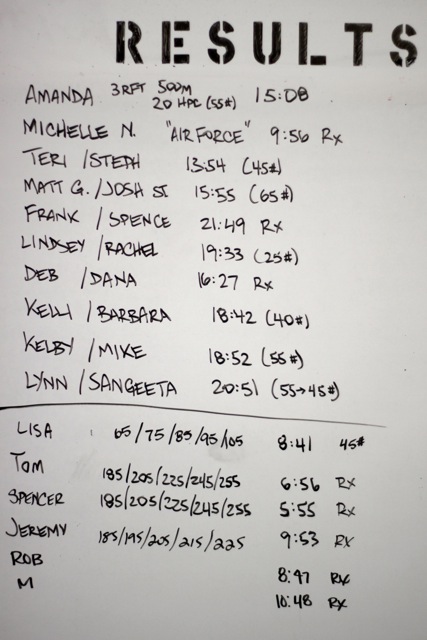 RESULTS
AMANDA 3RFT 500M 15:08
20 HPC (55#)
MICHELLE N. "AIR FORCE" 9:56 Rx
TERI / STEPH 13:54 (45#)
MATT G. / JOSH ST 15:55 (65#)
FRANK / SPENCE 21:49 Rx
LINDSEY / RACHEL 19:33 (25#)
DEB / DANA 16:27 Rx
KELLI / BARBARA 18:42 (40#)
KELBY / MIKE 18:52 (55#)
LYNN / SANGEETA 20:51 (55→45#)
LISA 65/75/85/95/105 8:41 45#
TOM 185/205/225/245/255 6:56 Rx
SPENCER 185/205/225/245/255 5:55 Rx
JEREMY 185/195/205/215/225 9:53 Rx
ROB 8:47 Rx
M 10:48 Rx